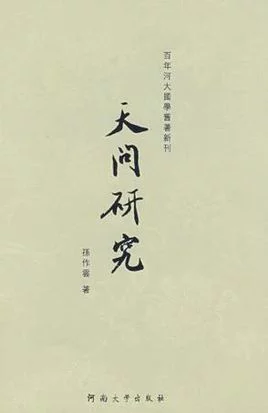 百年河大國學舊著新刊
天问研究
孫作雲 著
河南大学出版社